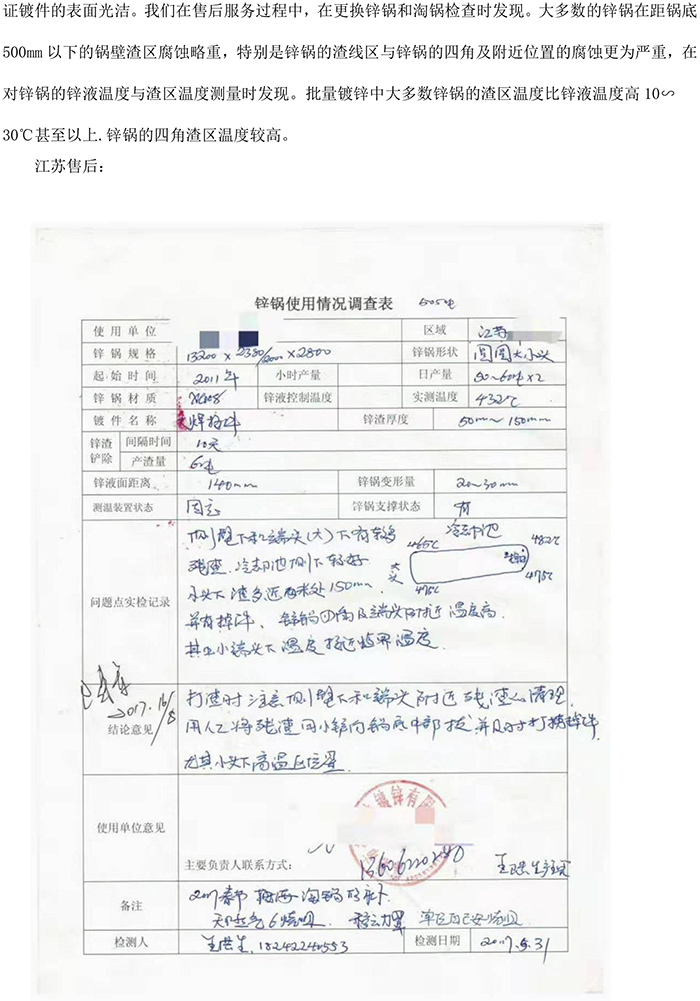 证镀件的表面光洁。我们在售后服务过程中，在更换锌锅和淘锅检查时发现。大多数的锌锅在距锅底
500mm 以下的锅壁渣区腐蚀略重，特别是锌锅的渣线区与锌锅的四角及附近位置的腐蚀更为严重，在
对锌锅的锌液温度与渣区温度测量时发现。批量镀锌中大多数锌锅的渣区温度比锌液温度高 10∽
30℃甚至以上.锌锅的四角渣区温度较高。
江苏售后：
锌锅使用情况调查表 505吨
使用单位 区域 江苏
锌锅规格 13200×2380/2200×2800 锌锅形状 圆圆大小头
起始时间 2011年 小时产量 日产量 50~60吨×2
锌锅材质 XG08 锌液控制温度 实测温度 432℃
镀件名称 焊接件 锌渣厚度 50mm~150mm
锌渣铲除 间隔时间 10天
产渣量 6吨
锌液面距离 140mm 锌锅变形量 20~30mm
测温装置状态 固定 锌锅支撑状态 有
问题点实检记录
侧壁下和端头(大)下有较多
残渣.冷却池侧下较好
小头下渣多近两米处150mm.
并有掉件、锌锅四角及端头附近温度高
其中小端头下温度接近临界温度.
465℃ 冷却池 482℃
大头
475℃ 475℃
结论意见
2017.
打渣时注意侧壁下和端头附近残渣心清理
用人工将残渣用小铲向锅底中部拢并及时打捞掉件
尤其小头下高温区位置
使用单位意见
镀锌有限
主要负责人联系方式：
备注
2017春节
天然气6烧咀
检测人 18242240553 检测日期 2017.5.31